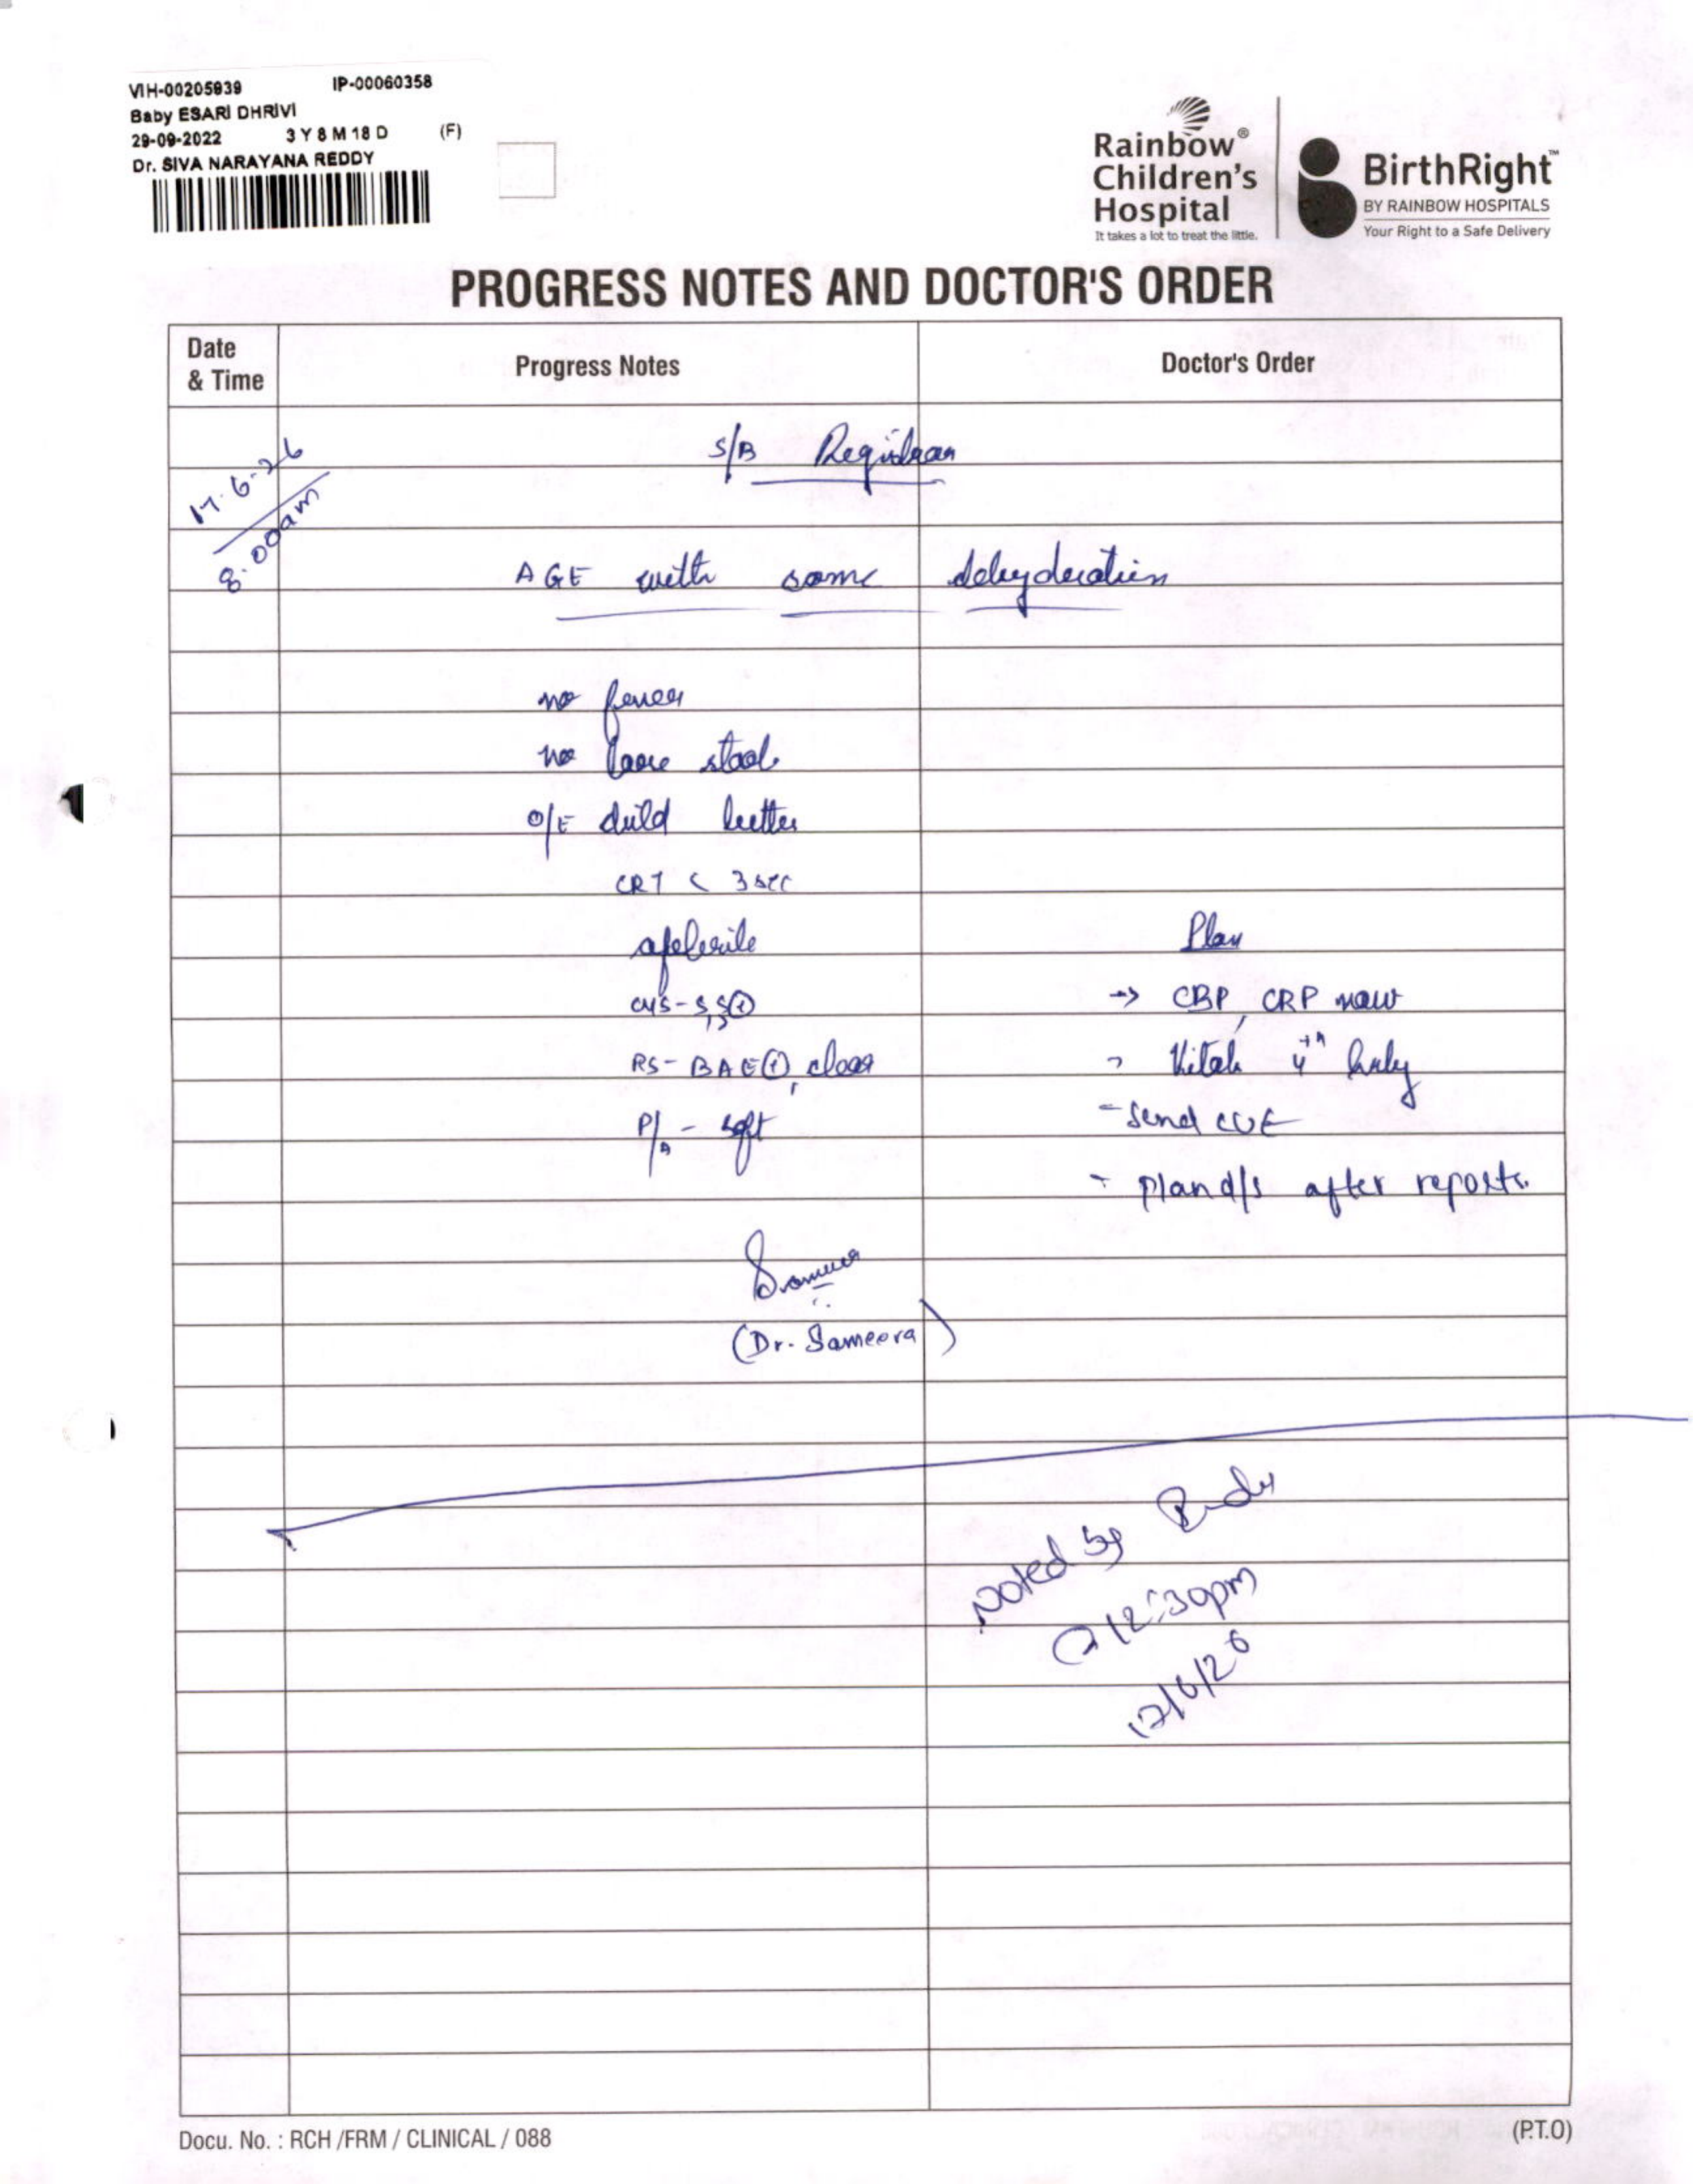 VIH-00205939 IP-00060358
Baby ESARI DHRIVI
29-09-2022 3 Y 8 M 18 D (F)
Dr. SIVA NARAYANA REDDY
Rainbow®
Children's
Hospital
It takes a lot to treat the little.
BirthRight™
BY RAINBOW HOSPITALS
Your Right to a Safe Delivery
PROGRESS NOTES AND DOCTOR'S ORDER
Date
& Time
Progress Notes
Doctor's Order
17.6.26
8.00am
S/B Registrar
AGE with some dehydration
no fever
no loose stools
O/E child better
CRT < 3 sec
afebrile
Plan
CVS - S,S⊕
→ CBP, CRP now
RS - BAE⊕, clear
4th hrly
P/A - soft
- Send CUE
- Plan d/s after reports.
(Dr. Sameera)
Noted by
@ 12:30pm
17/6/26
Docu. No. : RCH /FRM / CLINICAL / 088
(P.T.O)